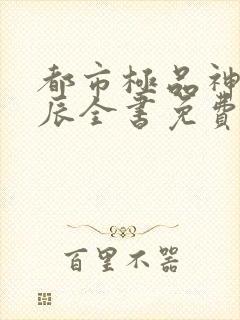 都市極品神
辰全書免費
百里不器